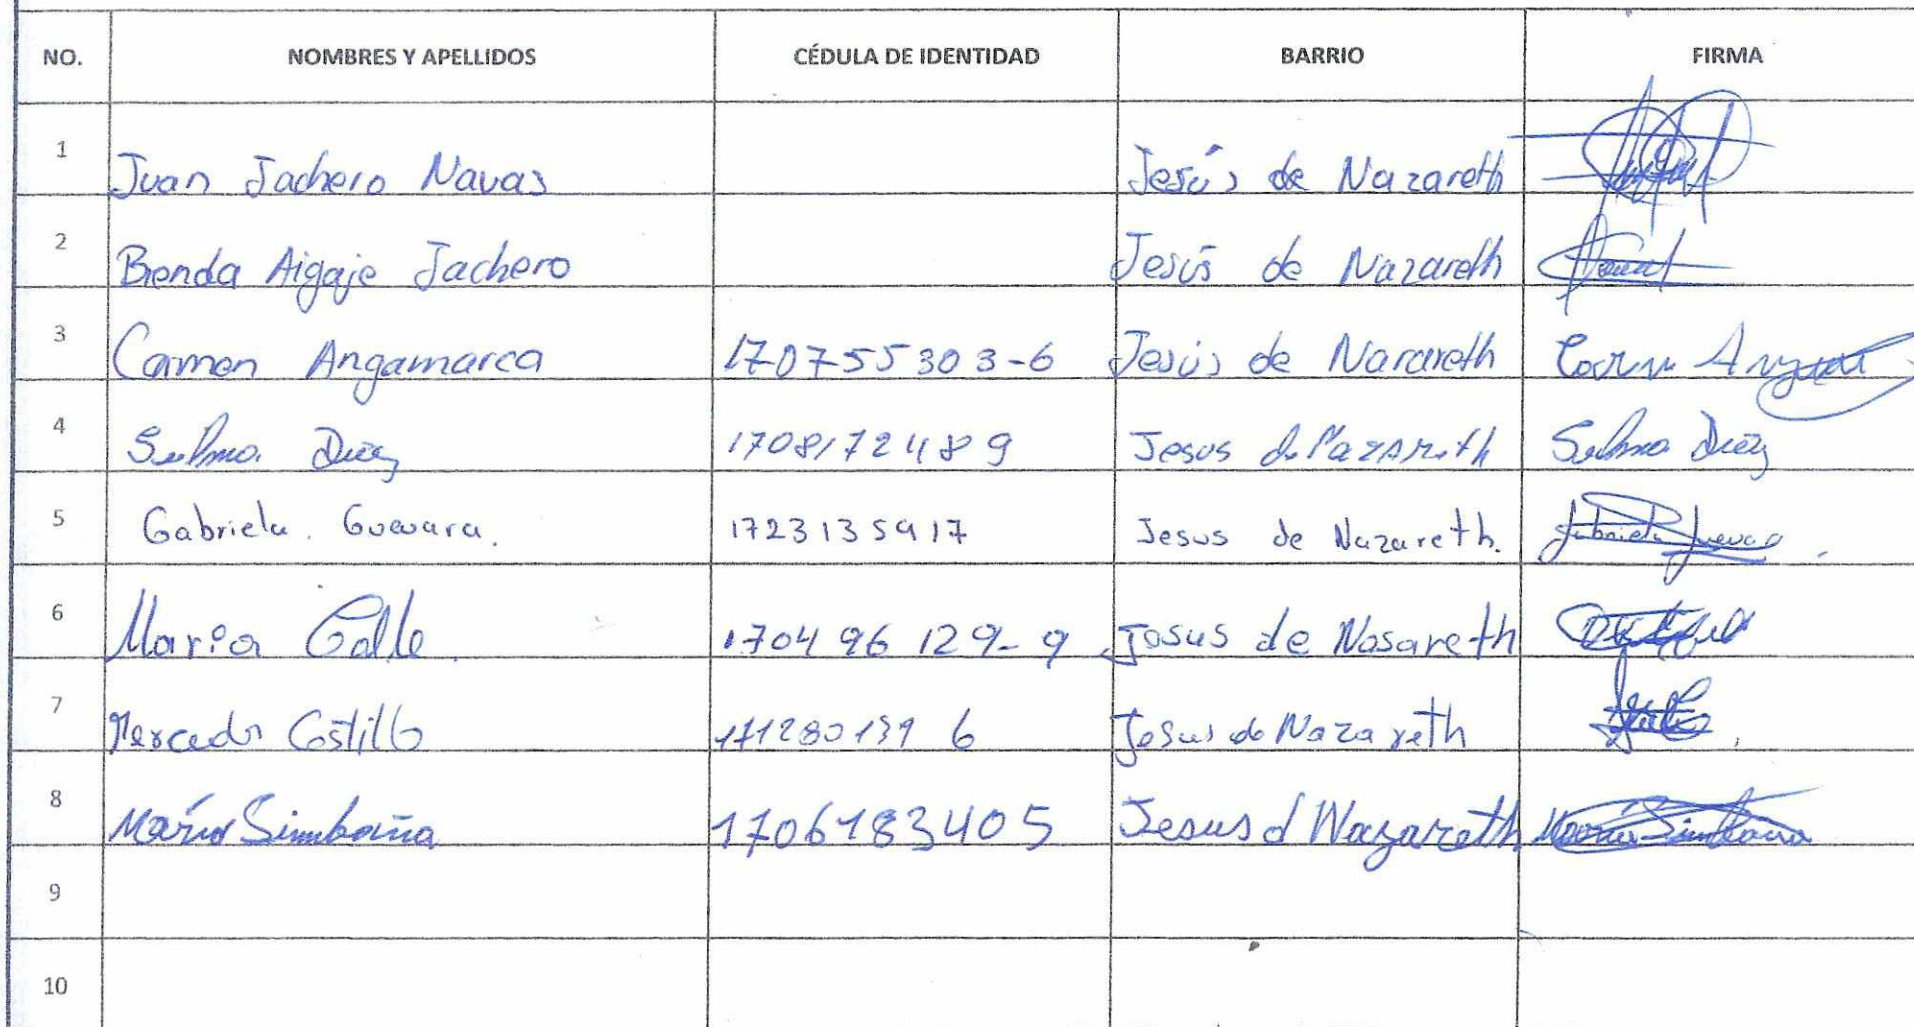 NO. NOMBRES Y APELLIDOS CÉDULA DE IDENTIDAD BARRIO FIRMA
1 Juan Jachero Navas Jesús de Nazareth
2 Brenda Aigaje Jachero Jesús de Nazareth
3 Carmen Angamarca 170755303-6 Jesús de Nazareth
4 Selma Diaz 1708172489 Jesus de Nazareth Selma Diaz
5 Gabriela Guevara. 1723135917 Jesus de Nazareth. Gabriela Guevara
6 Maria Calle 170496129-9 Josus de Nosareth
7 Mercedes Castillo 171280139 6 Josus de Nazareth
8 María Simbaña 1706183405 Jesus d Nazareth María Simbaña
9
10